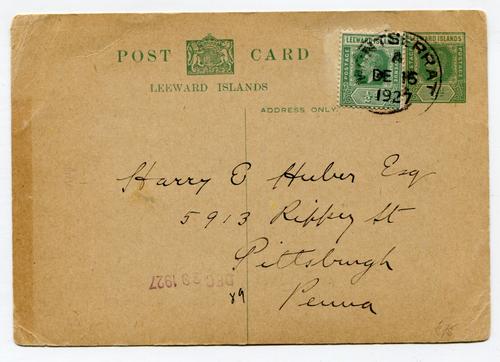 POST CARD
LEEWARD ISLANDS
ADDRESS ONLY
LEEWARD
POSTAGE
½
LEEWARD ISLANDS
MONTSERRAT
A
DE 16
1927
Harry E Huber Esq
5913 Rippey St
Pittsburgh
Penna
DEC 29 1927
89